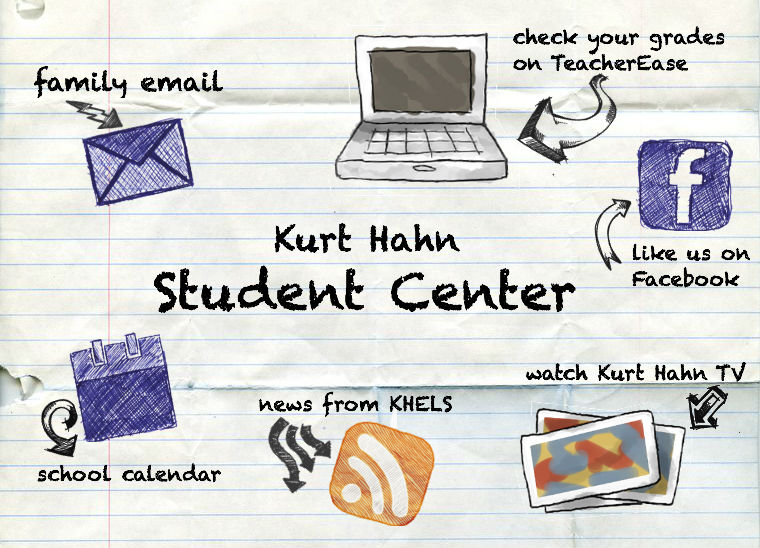 check your grades
on TeacherEase
family email
f
like us on
Facebook
Kurt Hahn
Student Center
watch Kurt Hahn TV
news from KHELS
school calendar